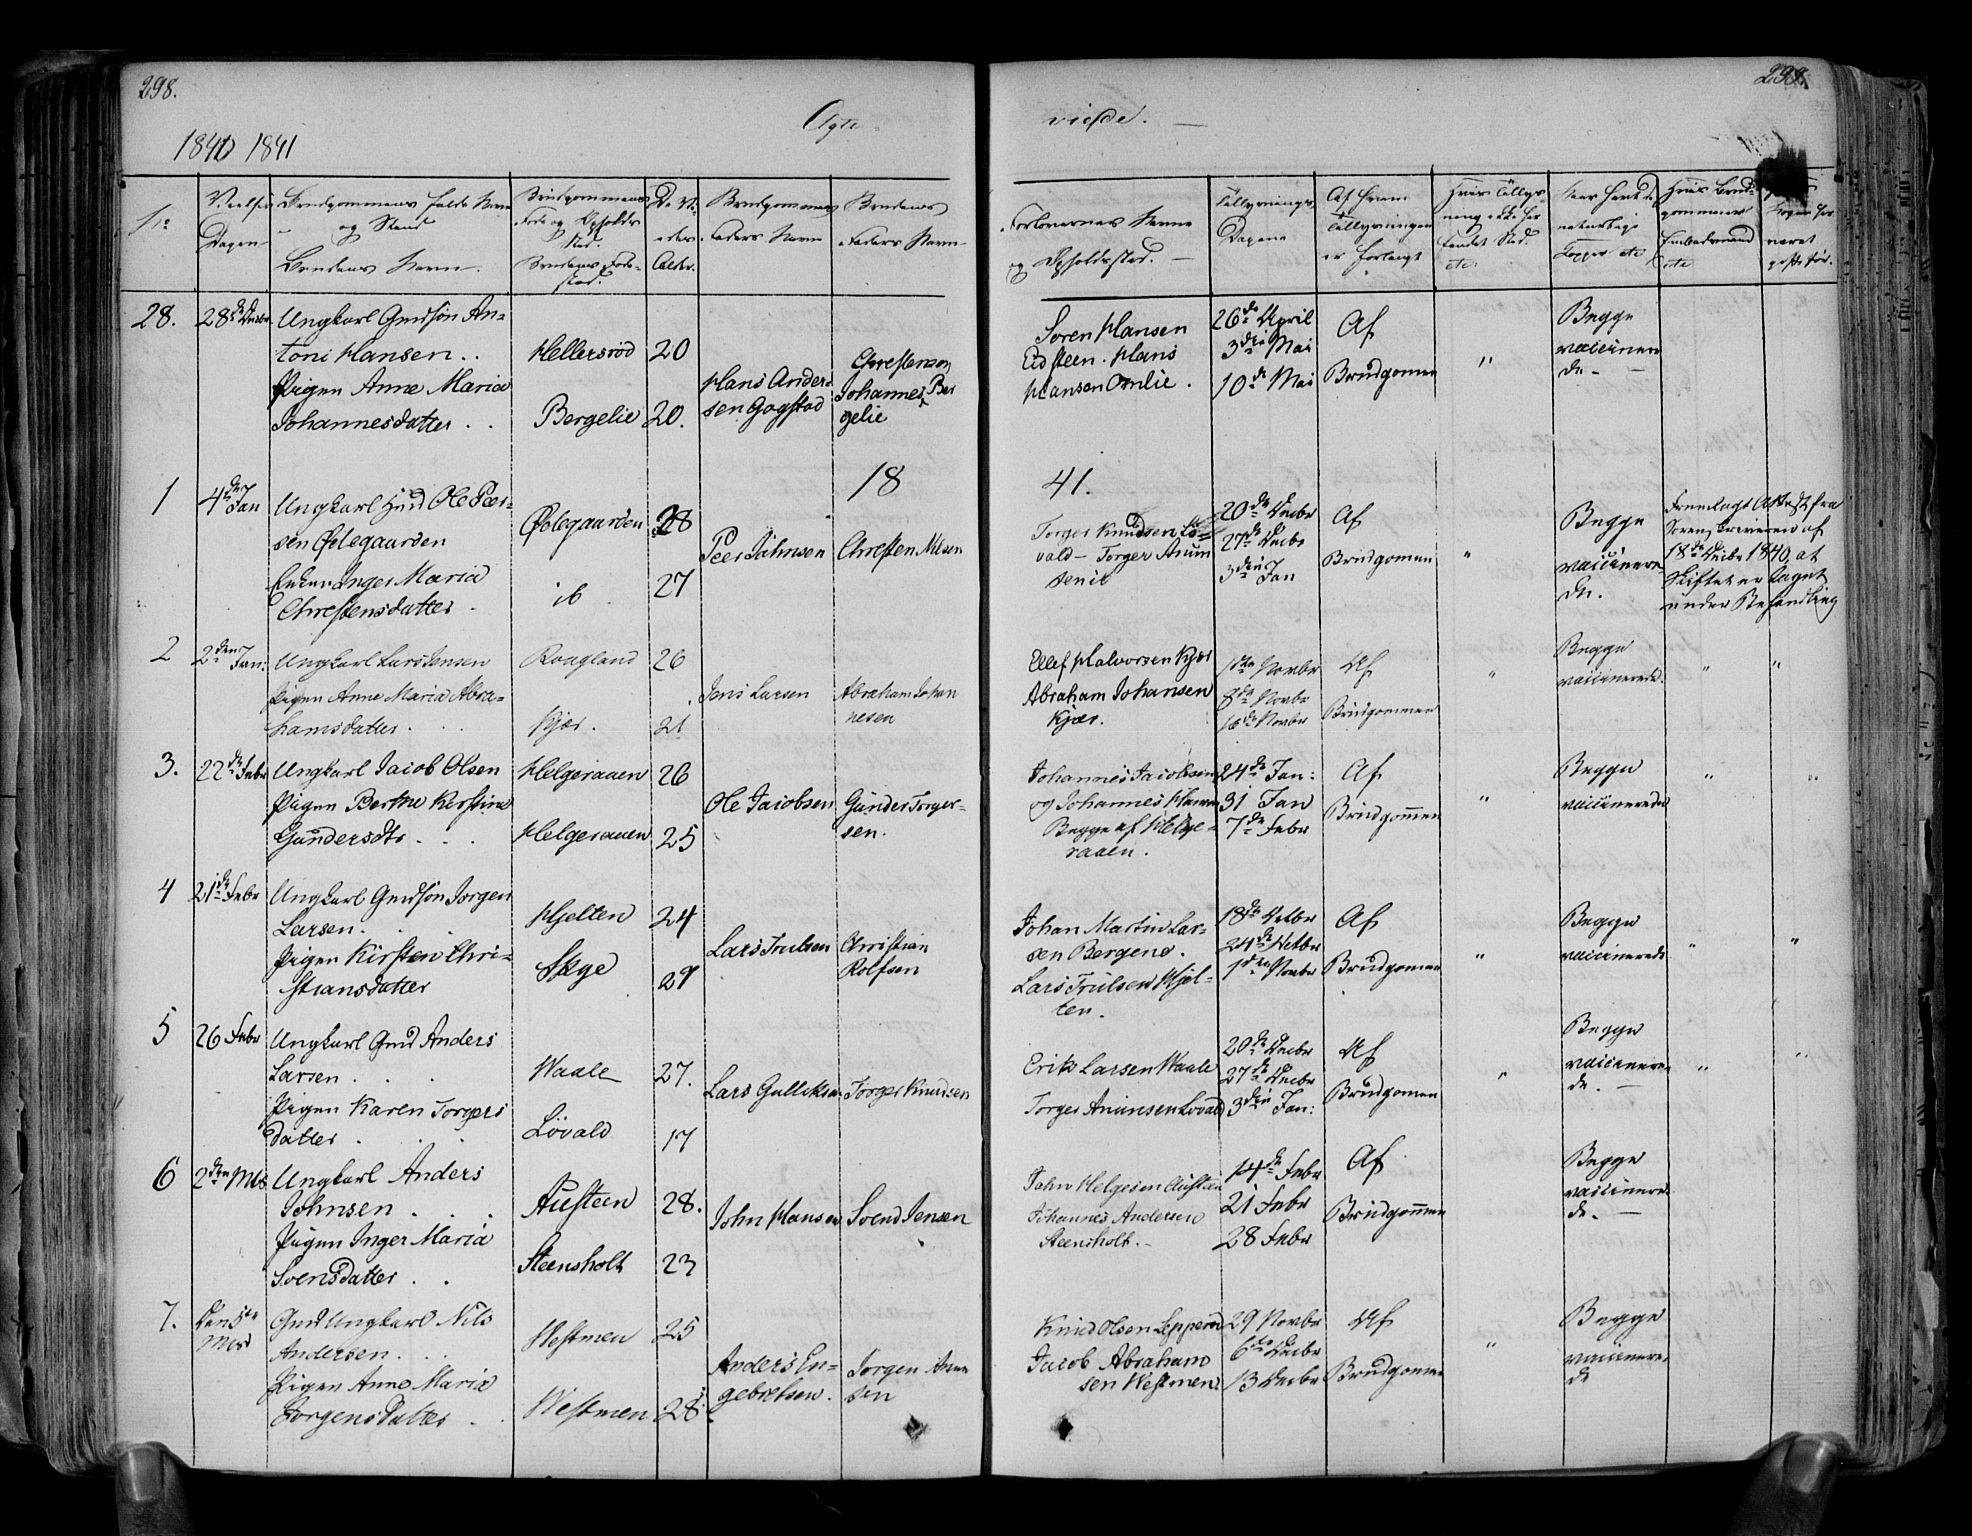 298.
298.
Ægte
viede.
1840 1841
No
Vielses Dagen
Brudgommens fulde Navn og Stand
Brudens Navn.
Brudgommens Føde og Opholds Sted.
Brudens Fødested.
Alder.
Brudgommens Faders Navn
Brudens Faders Navn
Forlovernes Navne og Opholdssted.
Tillysnings Dagene
Af hvem Tillysningen er forlangt
28.
28de Decbr
Ungkarl Gmdsøn An-
toni Hansen . .
Pigen Anne Maria
Johannesdatter . .
Hellersrød
Bergelie
20
20.
Hans Ander-
sen Gogstad
Christensen
Johannes Ber
gelie
Soren Hansen
Eidsteen. Hans
Hansen Omlie .
26de April
3die Mai
10de Mai
Af
Brudgomen
"
Begge
vaccinere
de -
18
41.
1
4de Jan
Ungkarl Hmd Ole Peer-
sen Østegaarden
Enken Inger Maria
Chrestensdatter .
Østegaarden
ib
28
27
Peer Johnsen
Chresten Nilsen
Torger Knudsen Lø-
vald - Torger Anun
senie
20de Decbr
27de Decbr
3die Jan
Af
Brudgomen
"
Begge
vaccinere
de.
Fremlagt Attest fra
Sorenskriveren af
18de Decbr 1840, at
Skiftet er taget
under Behandling
2
2den Jan:
Ungkarl Lars Jensen
Pigen Anne Maria Abra-
hamsdatter . .
Roagland
Kjær .
26
21
Jens Larsen
Abraham Johan
nesen
Ellef Halvorsen Kjær
Abraham Johansen
Kjær.
1ste Novbr
8de Novbr
15de Novbr
Af
Brudgommen
"
Begge
vaccinerede.
"
"
3.
22de Febr
Ungkarl Jacob Olsen
Pigen Berthe Kirstine
Gundersdtr . . .
Helgeraaen
Helgeraaen
26
25
Ole Jacobsen
Gunder Torger-
sen.
Johannes Jacobsen
og Johannes Hansen
Begge af Helge-
raaen.
24de Jan:
31 Jan
7de Febr
Af
Brudgommen
"
Begge
vaccinerede
"
"
4
21de Febr
Ungkarl Gmdsøn Jorgen
Larsen. . .
Pigen Kirsten Chri-
stiansdatter
Hjelten
Skye
24
27
Lars Trulsen
Christian
Rolfsen
Johan Martin Lar-
sen Bergene.
Lars Trulsen Hjel-
ten.
18de Octbr
24de Octbr
1den Novbr
Af
Brudgomen
"
Begge
vaccinerede
"
"
5
26 Febr
Ungkarl Gmd Anders
Larsen . . .
Pigen Karen Torgers
datter . . .
Waale
Løvald
27.
17
Lars Gulliksen
Torger Knudsen
Erik Larsen Waale
Torger Anunsen Lovald
20de Decbr
27de Decbr
3die Jan:
Af
Brudgomen
"
Begge
vaccinere-
de. -
"
"
6
2den Mts
Ungkarl Anders
Johnsen . . .
Pigen Inger Maria
Svensdatter . .
Austeen
Steensholt
28.
23
John Hansen
Svend Jensen
John Helgesen Austeen
Johannes Andersen
Steensholt. -
14de Febr
21 Febr
28 Febr
Af
Brudgommen
Begge
vaccinere-
de. -
7.
Den 5te
Mts
Gmd Ungkarl Nils
Andersen. . .
Pigen Anne Maria
Jorgensdatter .
Vestmen
Westmen
25
28
Anders En-
gebretsen.
Jorgen Anun
sen
Knud Olsen Lepperød
Jacob Abraham
sen Westmen.
29 Novbr
6te Decbr
13 Decbr
Af
Brudgomen
"
Begge
vaccinere-
de